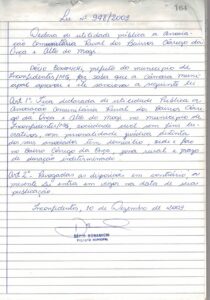 164
Lei nº 948/2009
Declara de utilidade pública a Associação
Comunitária Rural dos Bairros Córrego da
Onça e Alto do Mogi.
Décio Bonamichi, prefeito do município de
Inconfidentes/MG, faz saber que a câmara muni-
cipal aprovou e ele sanciona a seguinte lei
Art. 1º Fica declarada de utilidade Pública a
Associação Comunitária Rural dos Bairros Córre-
go da Onça e Alto do Mogi, no município de
Inconfidentes/MG, sociedade civil sem fins lu-
crativos, com personalidade jurídica distinta
dos seus associados, tem domicílio, sede e foro
no Bairro Córrego da Onça, zona rural e prazo
de duração indeterminado.
Art. 2º Revogadas as disposições em contrário, a
presente Lei entra em vigor na data de sua
publicação.
Inconfidentes, 10 de Dezembro de 2009
DÉCIO BONAMICHI
PREFEITO MUNICIPAL